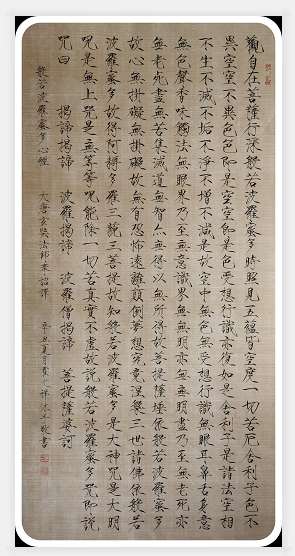 觀自在菩薩行深般若波羅蜜多時照見五蘊皆空度一切苦厄舍利子色不
異空空不異色色即是空空即是色受想行識亦復如是舍利子是諸法空相
不生不滅不垢不淨不增不減是故空中無色無受想行識無眼耳鼻舌身意
無色聲香味觸法無眼界乃至無意識界無無明亦無無明盡乃至無老死亦
無老死盡無苦集滅道無智亦無得以無所得故菩提薩埵依般若波羅蜜多
故心無掛礙無掛礙故無有恐怖遠離顛倒夢想究竟涅槃三世諸佛依般若
波羅蜜多故得阿耨多羅三藐三菩提故知般若波羅蜜多是大神咒是大明
咒是無上咒是無等等咒能除一切苦真實不虛故說般若波羅蜜多咒即說
咒曰 揭諦揭諦 波羅揭諦 波羅僧揭諦 菩提薩婆訶
般若波羅蜜多心經 大唐玄奘法師奉詔譯 辛丑夏月 敬書